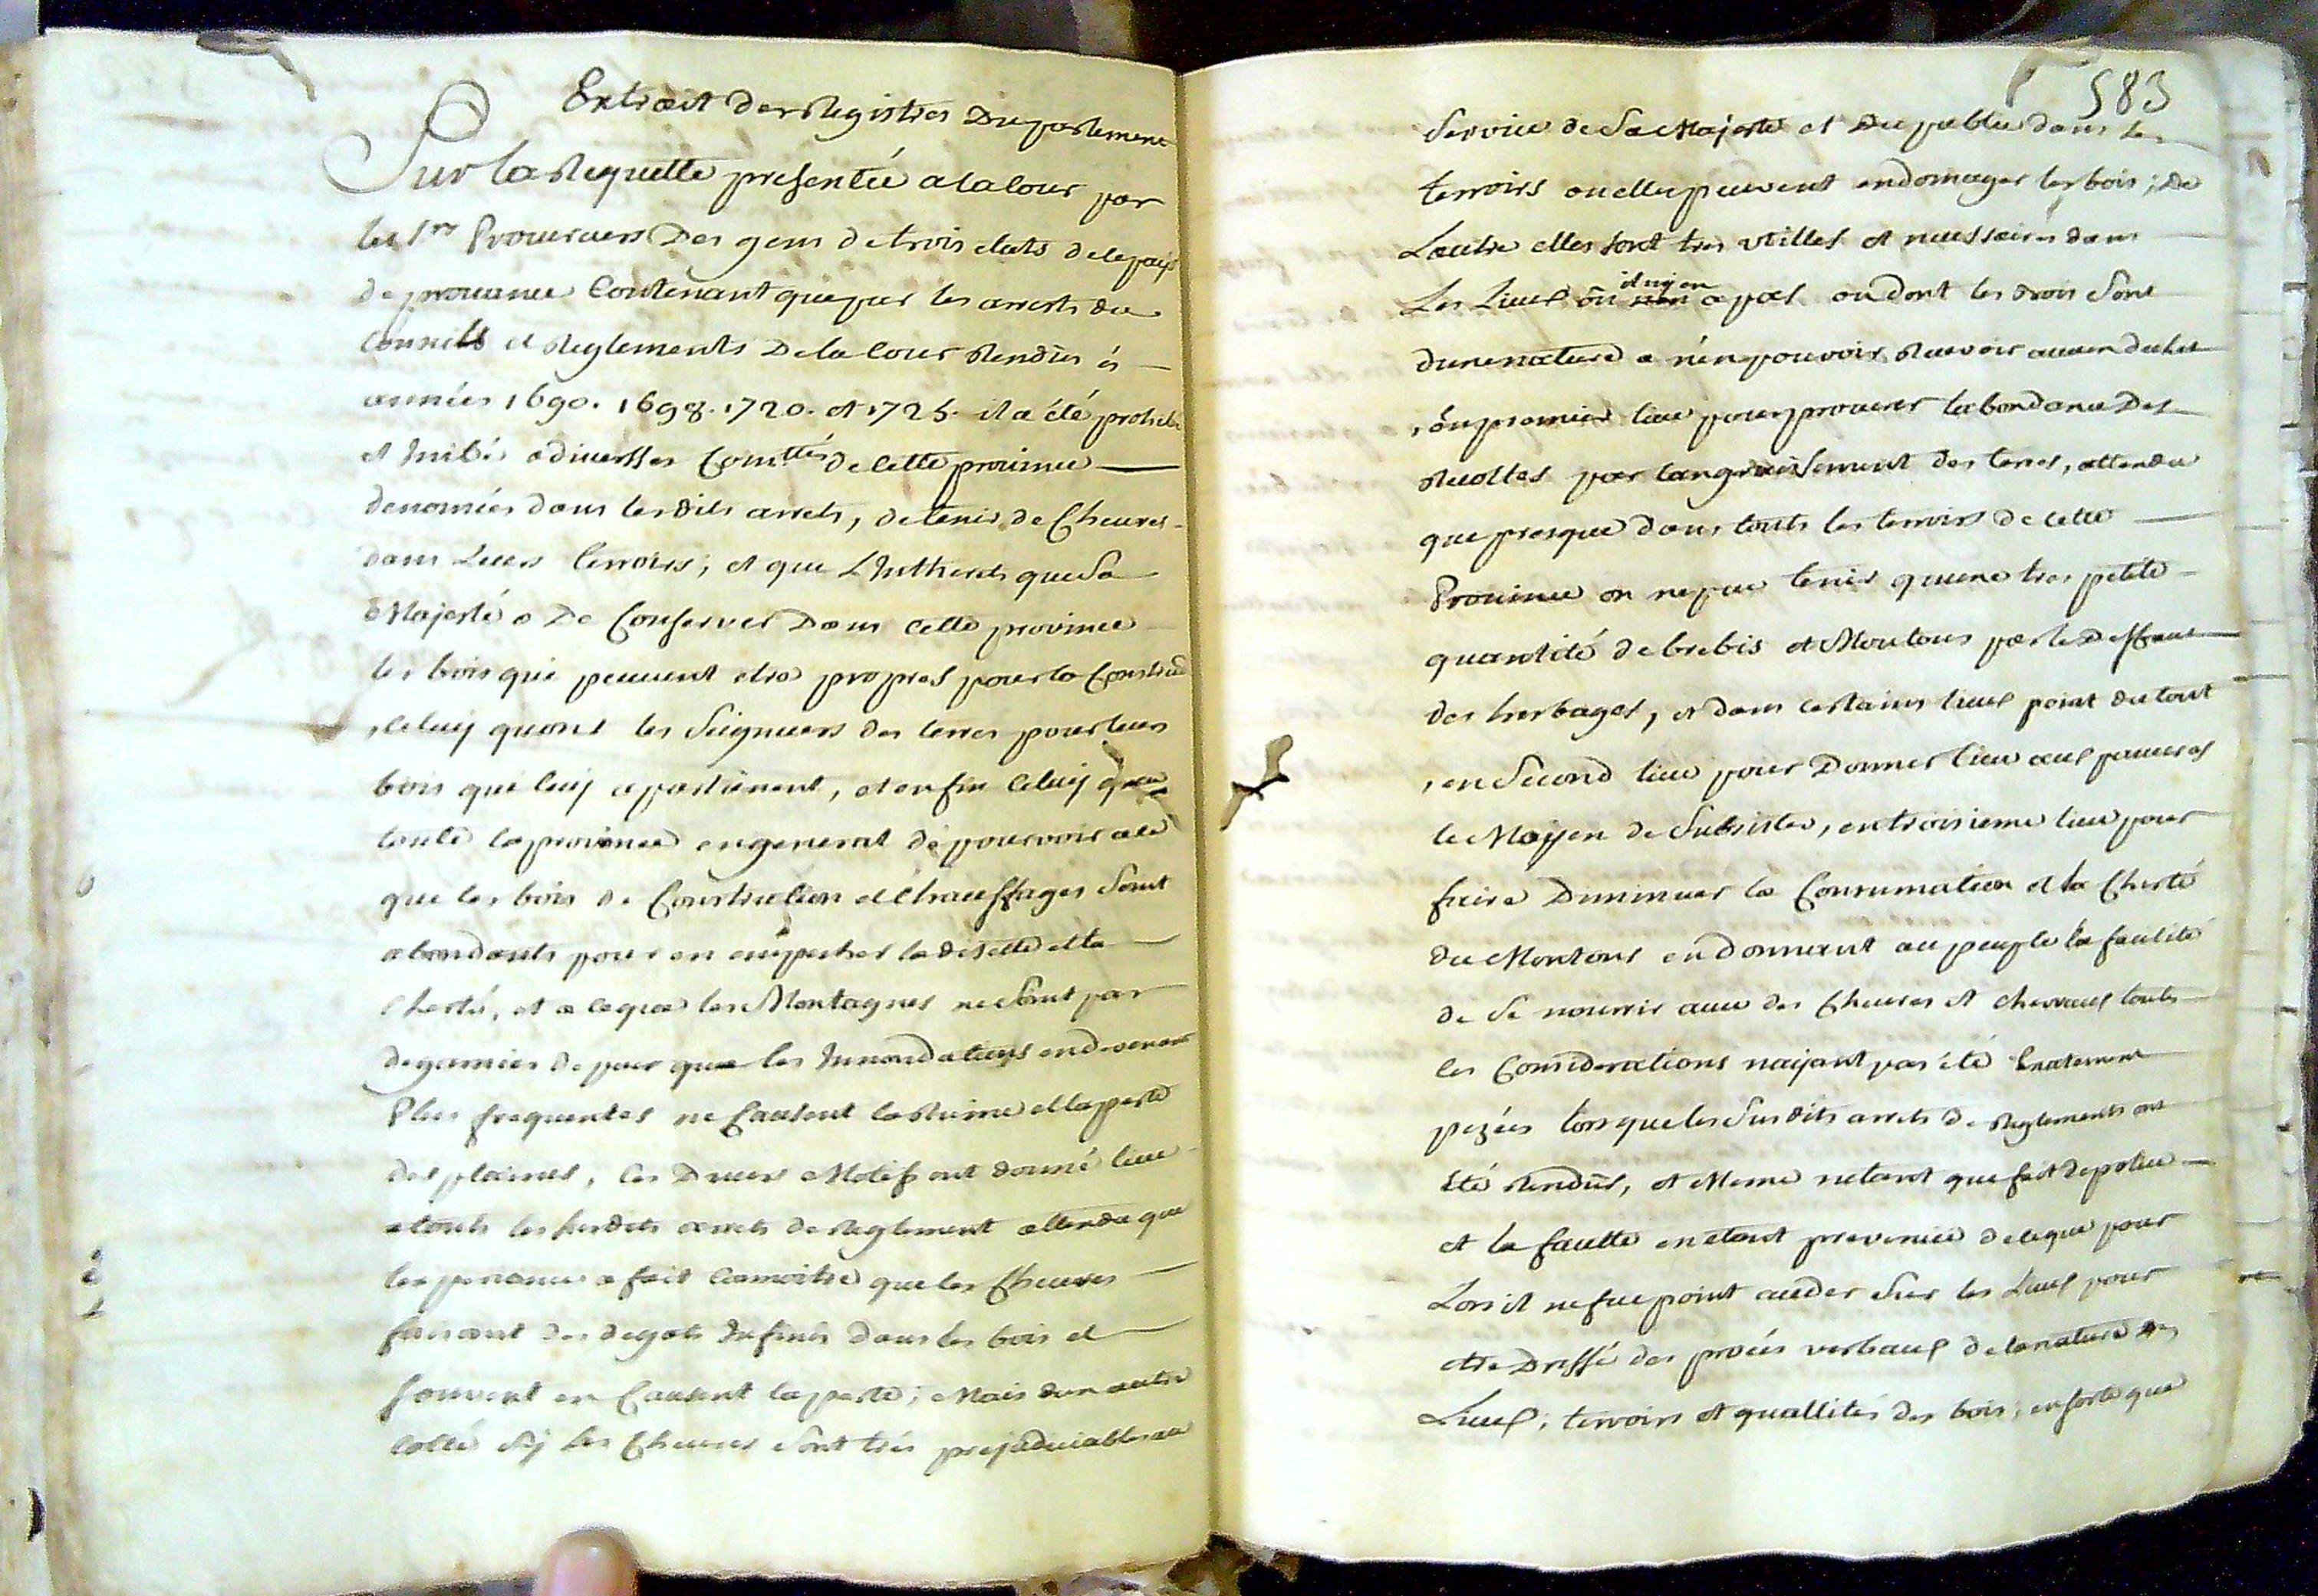 Extrait des Registres Du parlement
Sur la Requette presentée a la Cour par
les Srs Procureurs Des gens de trois etats de ce pays
de provence Contenant que par les arrests du
Conseils et Reglements De la Cour Rendus és
années 1690. 1698. 1720. et 1725. il a été prohibé
et Inibé a diversses Comttés de cette province
denomées dans lesdits arrets, de tenir de Chevres
dans Leurs terroirs; et que L'Intherest que Sa
Majesté a De Conserver Dans cette province
les bois que peuvent etre propres pour la Construon
, celuy qu'ont les Seigneurs des terres pour leurs
bois qui leuy apartienent, et enfin celuy que
toute la province en general de pourvoir a ce
que les bois de Construction et Chauffages Sont
abondants pour en empecher la disette et la
Cherté, et a ce que les Montagnes ne Soint pas
degarnies de peur que les Innondations en devenant
Plus frequentes ne Causent la Ruine et la perte
des plaines, Ces Divers Motifs ont donné lieu
a touts les Susdits arrets de Reglement attendu que
l'experiance a fait Connoitre que les Chevres
faisant des degats Infinis dans les bois et
souvent en Causent la perte; Mais d'un autre
Cotté Sy les Chevres Sont tres prejudiciables au
583
Service de Sa Majesté et Du public dans les
terroirs ou elles peuvent endomager les bois; De
L'autre elles sont tres utilles et necessaires dans
Les Lieux ou il n'y en a pas ou dont les bois Sont
d'une nature a n'en pouvoir Recevoir aucun dechet
, en premier lieu pour procurer l'abondance Des
Recoltes par l'angraissement des terres, attendu
que presque dans touts les terroirs de cette
Province on ne peu tenir qu'une tres petite
quantité de brebis et Moutons par le Deffaut
des herbages, et dans certains lieux point du tout
, en Second lieu pour Donner lieu aux pauvres
le Moyen de Subsister, en troisieme lieu pour
faire Diminuer la Consumation et la Cherté
du Moutons en donnant au peuple la facilité
de Se nourrir avec des Chevres et chevraux toutes
les Considerations n'ayant pas été Exatement
pezées lorsque les Susdits arrets de Reglements ont
Eté Rendus, et Meme n'etant que fait de police
et la fautte en etant provenüe de ce que pour
Lors il ne fue point acceder Sur les Lieux pour
etre Dressé des procés verbaux de la nature des
Lieux; terroirs et quallités des bois; en sorte que